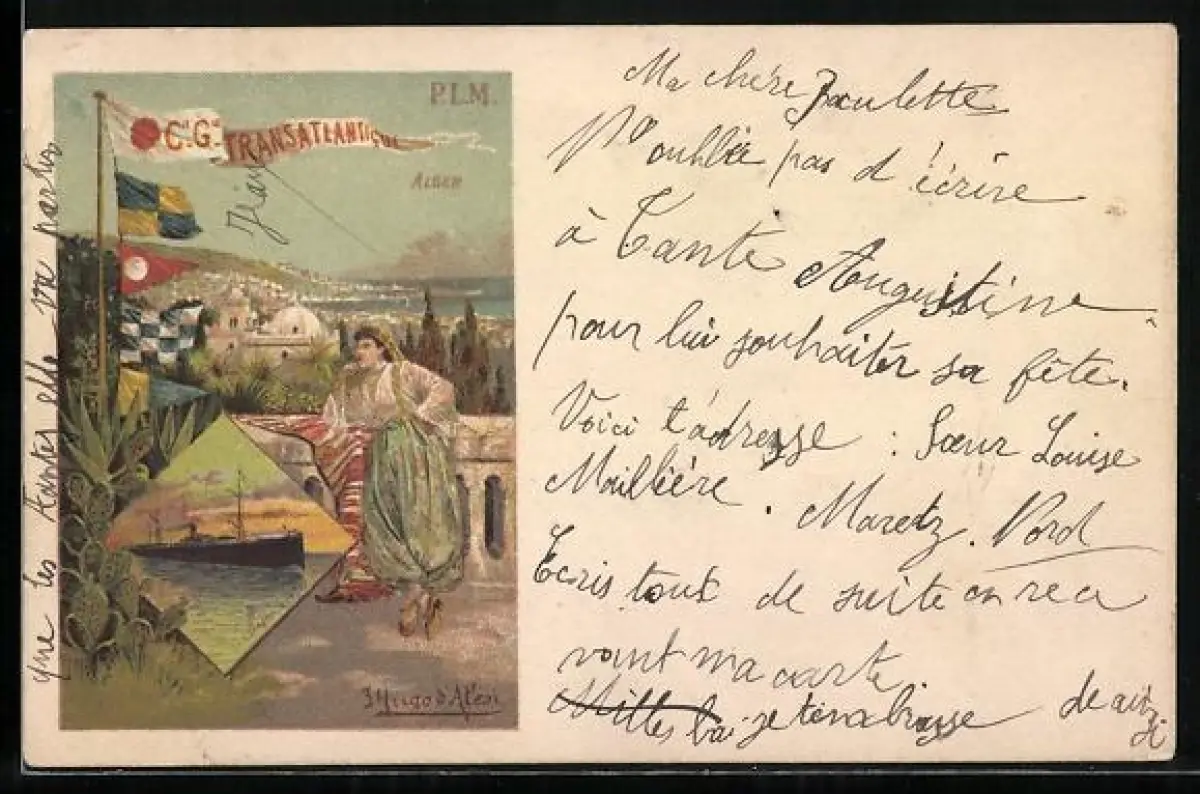 P.L.M.
Cie Gle TRANSATLANTIQUE
ALGER
Jean
F. Hugo d'Alési
Ma chére Paulette
N'oublie pas d'écrire
à Tante Augustine
pour lui souhaiter sa fête.
Voici l'adresse : Sœur Louise
Maillière. Maretz. Nord
Ecris tout de suite en rece
vant ma carte.
Milles bai je tembrasse
que les tantes elle va partir